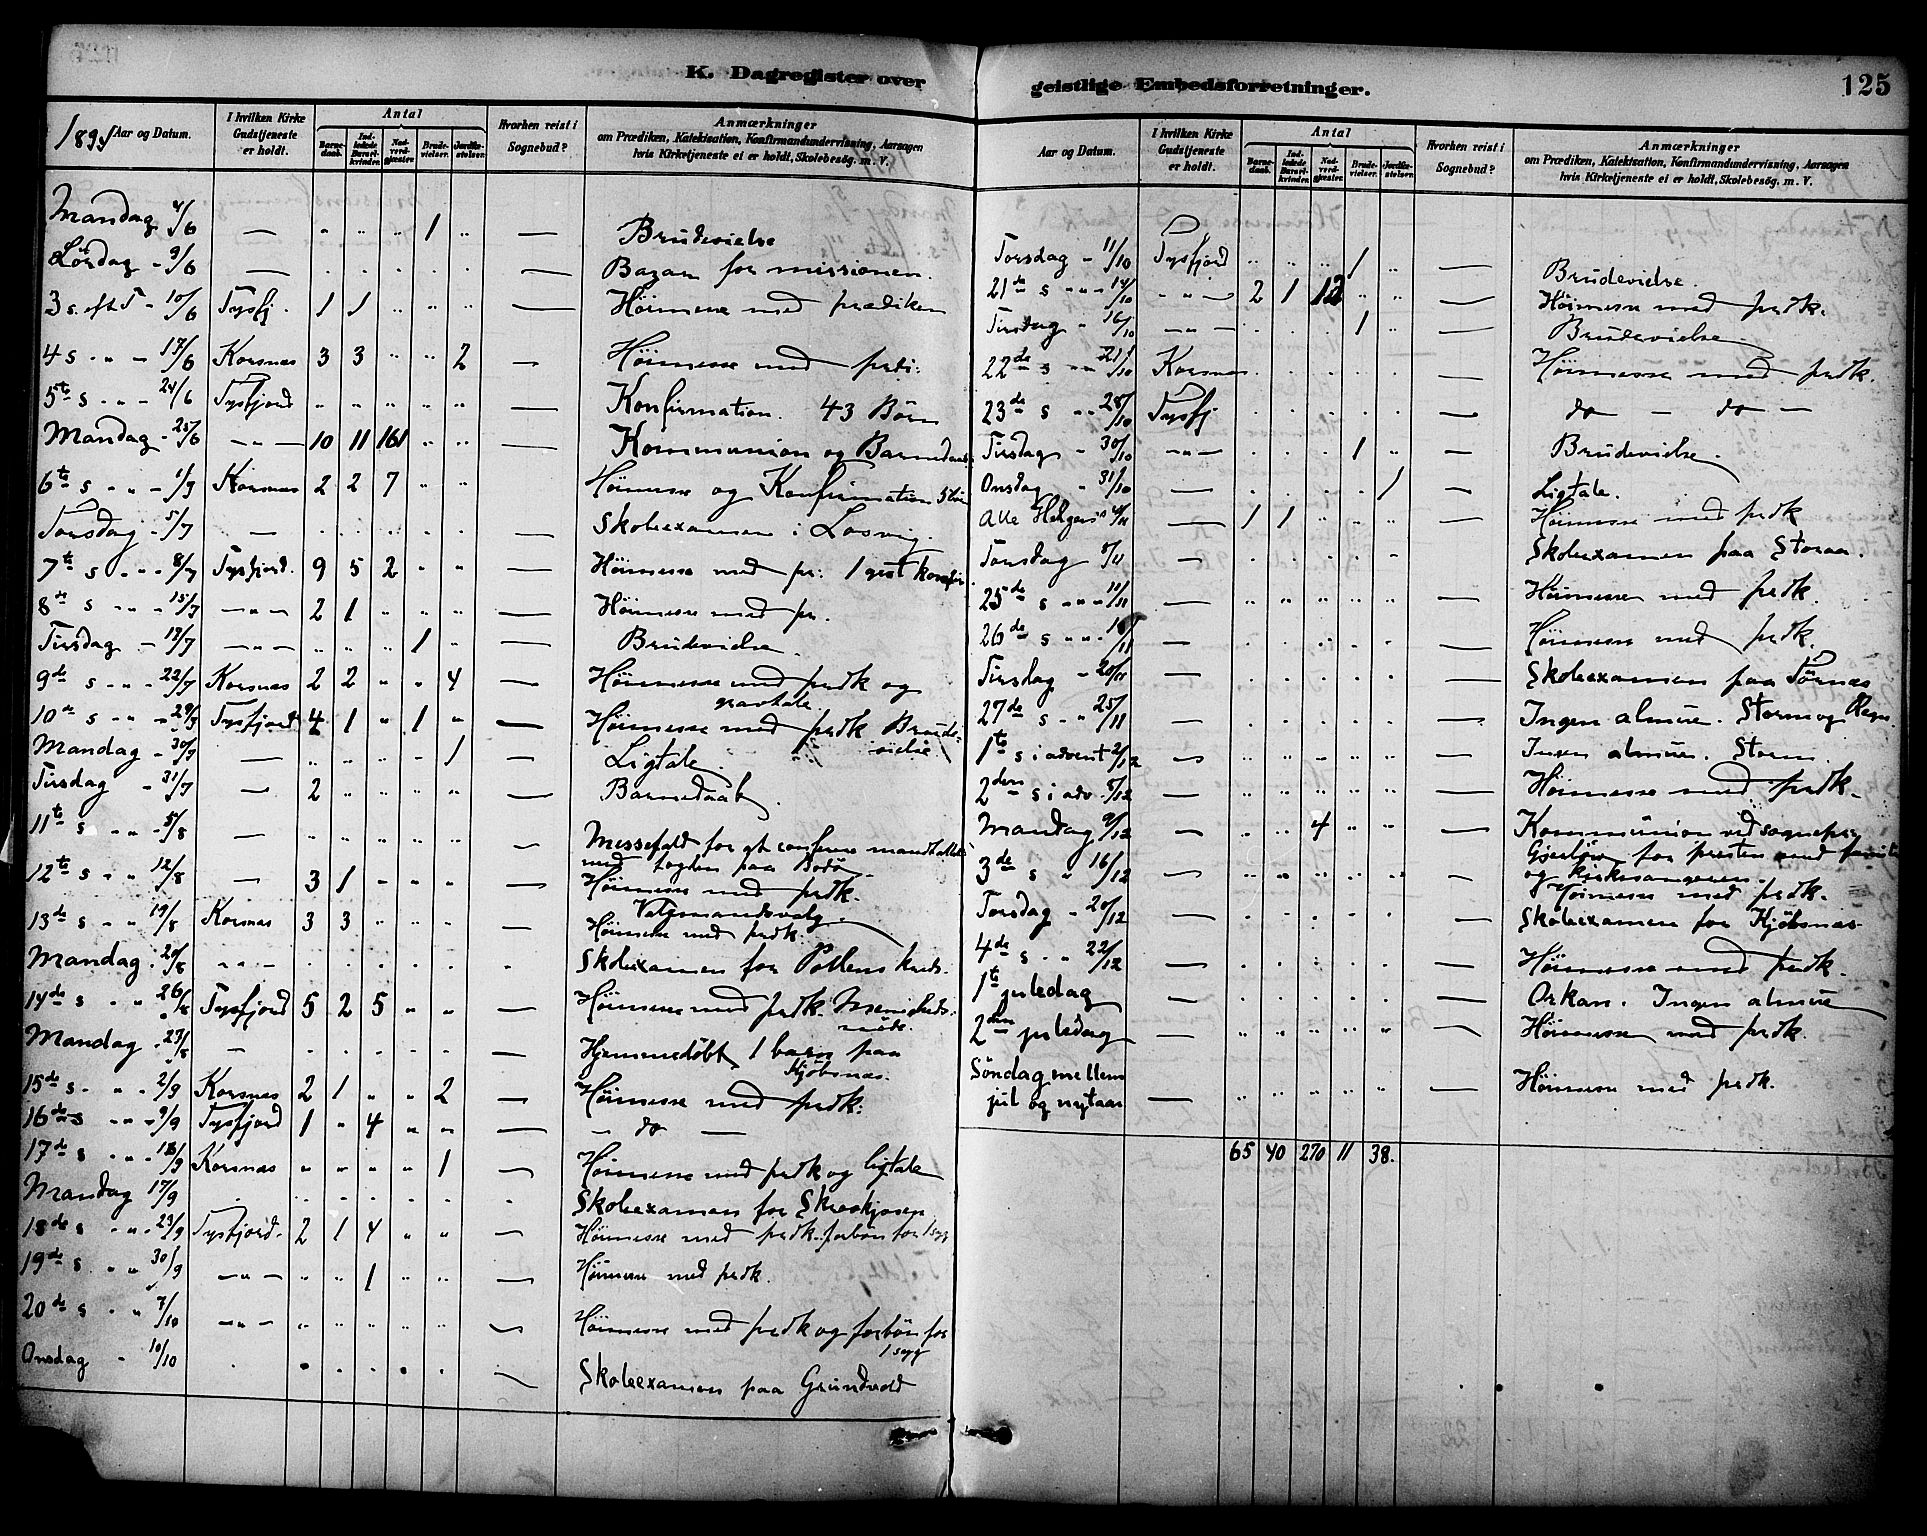 K. Dagregister over geistlige Embedsforretninger.
125
Aar og Datum. I hvilken Kirke Gudstjeneste er holdt. Antal Barnedaab. Indledede Barselkvinder. Nadverdgjester. Brudevielser. Jordfæstelser. Hvorhen reist i Sognebud? Anmærkninger om Prædiken, Katekisation, Konfirmandundervisning, Aarsagen hvis Kirketjeneste ei er holdt, Skolebesøg. m. V.
Mandag 4/6 — " " " 1 " — Brudevielse
Lördag - 9/6 — . . . . . — Bazar for missionen.
3 s. eft T - 10/6 Tysfj. 1 1 " " " — Höimesse med prædiken
4 s - " - 17/6 Korsnes 3 3 " " 2 — Höimesse med præi:
5te s - " - 24/6 Tysfjord " " " " " — Konfirmation. 43 Börn
Mandag - 25/6 — " — 10 11 161 " " — Kommunion og Barnedaab
6te s - " - 1/7 Korsnes 2 2 7 " " — Höimesse og Konfirmation
Torsdag - 5/7 — . . . . . — Skoleexamen i Losvig.
7te s - " - 8/7 Tysfjord. 9 5 2 " " — Höimesse med pr:
8de s - " - 15/7 — " — 2 1 " " " — Höimesse med pr.
Tirsdag - 17/7 — " — " " " 1 " — Brudevielse.
9de s - " - 22/7 Korsnes 2 2 " " 4 — Höimesse med predk og
gravtale.
10de s - " - 29/7 Tysfjord 4 1 " 1 " — Höimesse med predk Brude-
vielse
Mandag - 30/7 — " " " " 1 — Ligtale.
Tirsdag - 31/7 — 2 " " " " — Barnedaab.
11te s - " - 5/8 — " " " " " — Messefald for at conferere mandtallet
med fogden paa Bodö
12te s - " 12/8 — 3 1 - " " — Höimesse med predk.
Valgmandsvalg.
13de s - " 19/8 Korsnes 3 3 " " " — Höimesse med predk.
Mandag . 20/8 - " - . . . . . . Skoleexamen for Pollens kreds.
14de s " " 26/8 Tysfjord 5 2 5 " " — Höimesse med predk.
möde.
Mandag . 27/8 — . . . . . — Hjemmedöbt 1 barn paa
Kjöbsnes.
15de s - " 2/9 Korsnes 2 1 " " 2 — Höimesse med predk:
16de s " - 9/9 Tysfjord 1 " 4 " " — - do —
17de s " " 16/9 Korsnes " " " " 1 — Höimesse med predk og ligtale
Mandag 17/9 . . . . . . Skoleexamen for
18de s " " 23/9 Tysfjord. 2 1 4 " " — Höimesse med predk. forbön for 1 syg
19de s . " 30/9 — " — " " 1 " " — Höimesse med predk.
20de s - " 7/10 — " — " " " " " — Höimesse med predk og forbön for
1 syg
Onsdag - 10/10 . . . . . . — Skoleexamen paa Grundvold
Aar og Datum. I hvilken Kirke Gudstjeneste er holdt. Antal Barnedaab. Indledede Barselkvinder. Nadverdgjester. Brudevielser. Jordfæstelser. Hvorhen reist i Sognebud? Anmærkninger om Prædiken, Katekisation, Konfirmandundervisning, Aarsagen hvis Kirketjeneste ei er holdt, Skolebesøg. m. V.
Torsdag - 11/10 Tysfjord " " " 1 " — Brudevielse.
21de s " " 14/10 - " — 2 1 12 " " — Höimesse med predk.
Tirsdag - 16/10 — " — . . . 1 " — Brudevielse.
22de s " " 21/10 Korsnes . . . . . — Höimesse med predk.
23de s " 28/10 Tysfj . . . . . — do — do —
Tirsdag " 30/10 — " — . . . 1 " — Brudevielse.
Onsdag " 31/10 — . . . . 1 — Ligtale.
Alle Helgens 4/11 — 1 1 " " " — Höimesse med predk
Torsdag 8/11 Skoleexamen paa Storaa.
25de s " " 11/11 — " " " " " — Höimesse med predk.
26de s " " 18/11 — " " " . . — Höimesse med predk.
Tirsdag - 20/11 — . . . . . — Skoleexamen paa
27de s . " 25/11 — . . . . . — Ingen almue. Storm og Regn.
1te s i advent 2/12 — " " " " " — Ingen almue. Storm.
2den s i adv. 8/12 — " " " " " — Höimesse med predk.
Mandag 9/12 — " " 4 " " — Kommunion ved sognepr.
3de s " 16/12 — " " " " " — for presten med familie
og kirkesangeren.
Höimesse med predk.
Torsdag - 20/12 — . . . . . — Skoleexamen for Kjöbsnes
4de s . " 22/12 — . . . . . — Höimesse med predk.
1te juledag — . . . . . — Orkan. Ingen almue
2den juledag — " " " " " — Höimesse med predk.
Söndag mellem
jul og nytaar — " " " " " — Höimesse med predk.
65 40 270 11 38.